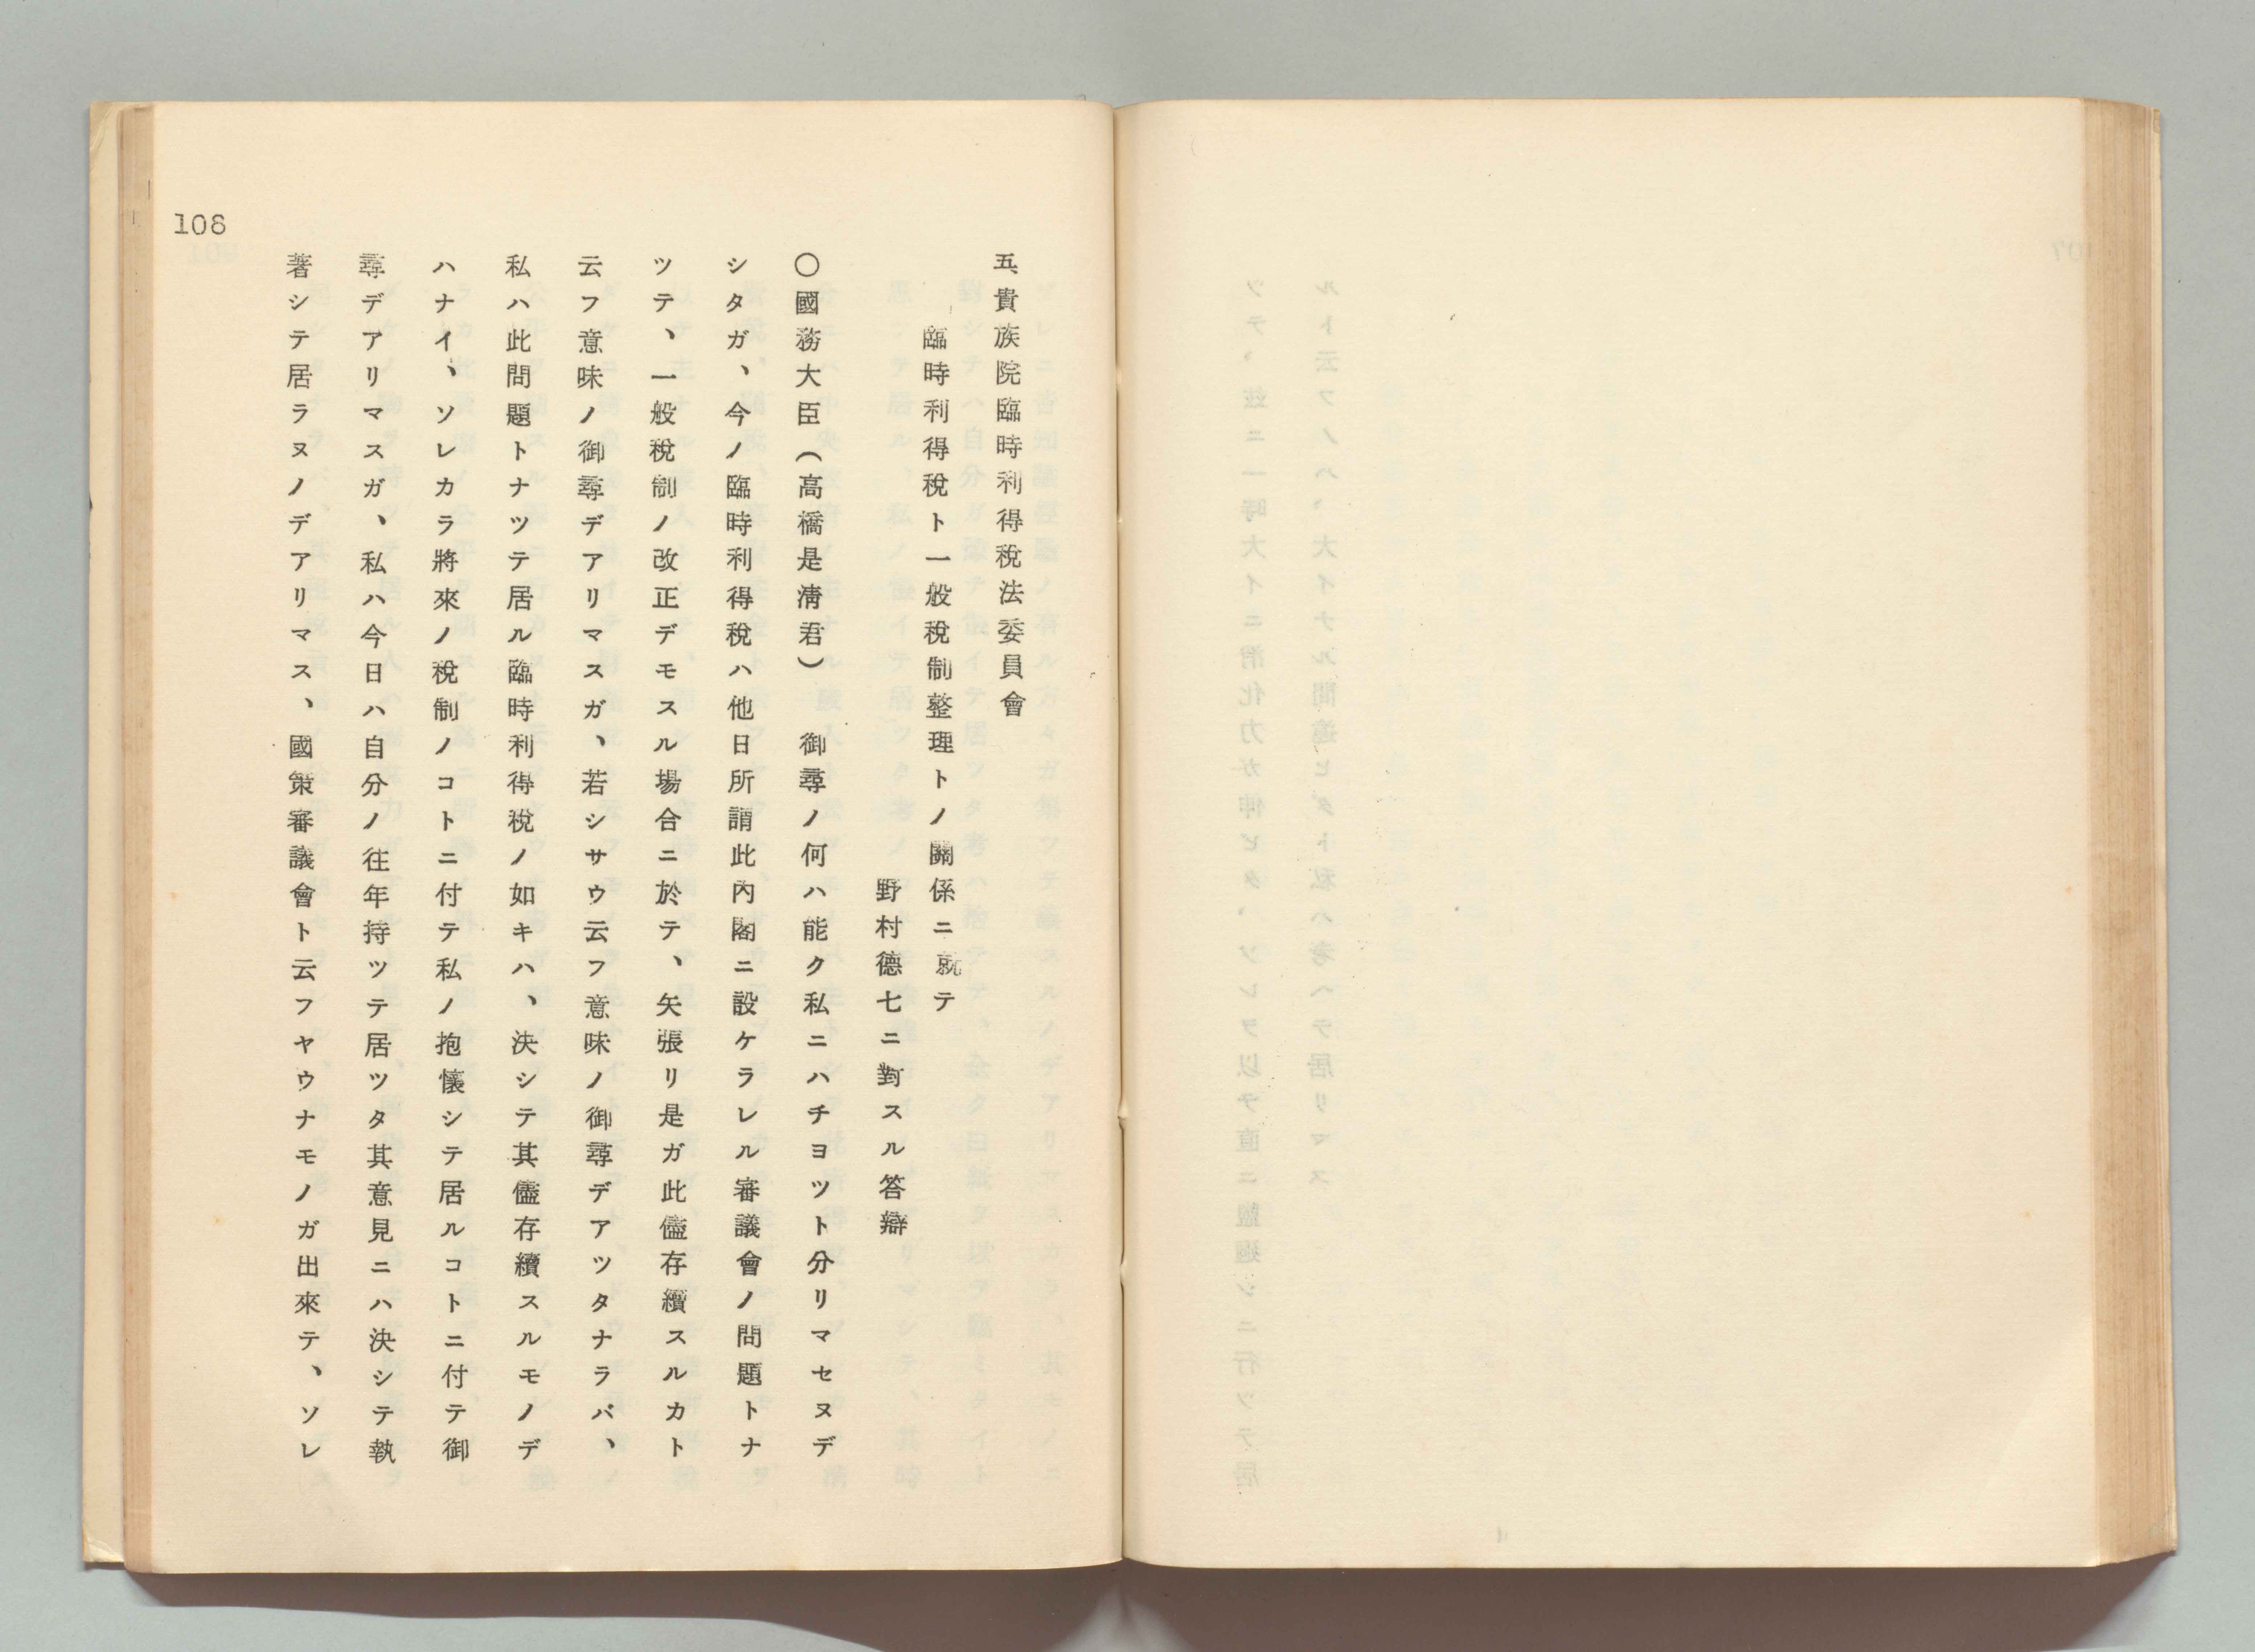 五貴族院臨時利得稅法委員會
臨時利得稅ト一般稅制整理トノ關係ニ就テ
野村德七ニ對スル答辯
〇國務大臣(高橋是淸君)　御尋ノ何ハ能ク私ニハチヨツト分リマセヌデ
シタガ、今ノ臨時利得稅ハ他日所謂此內閣ニ設ケラレル審議會ノ問題トナ
ツテ、一般稅制ノ改正デモスル場合ニ於テ、矢張リ是ガ此儘存續スルカト
云フ意味ノ御尋デアリマスガ、若シサウ云フ意味ノ御尋デアツタナラバ、
私ハ此問題トナツテ居ル臨時利得稅ノ如キハ、決シテ其儘存續スルモノデ
ハナイ、ソレカラ將來ノ稅制ノコトニ付テ私ノ抱懷シテ居ルコトニ付テ御
尋デアリマスガ、私ハ今日ハ自分ノ往年持ツテ居ツタ其意見ニハ決シテ執
著シテ居ラヌノデアリマス、國策審議會ト云フヤウナモノガ出來テ、ソレ
108